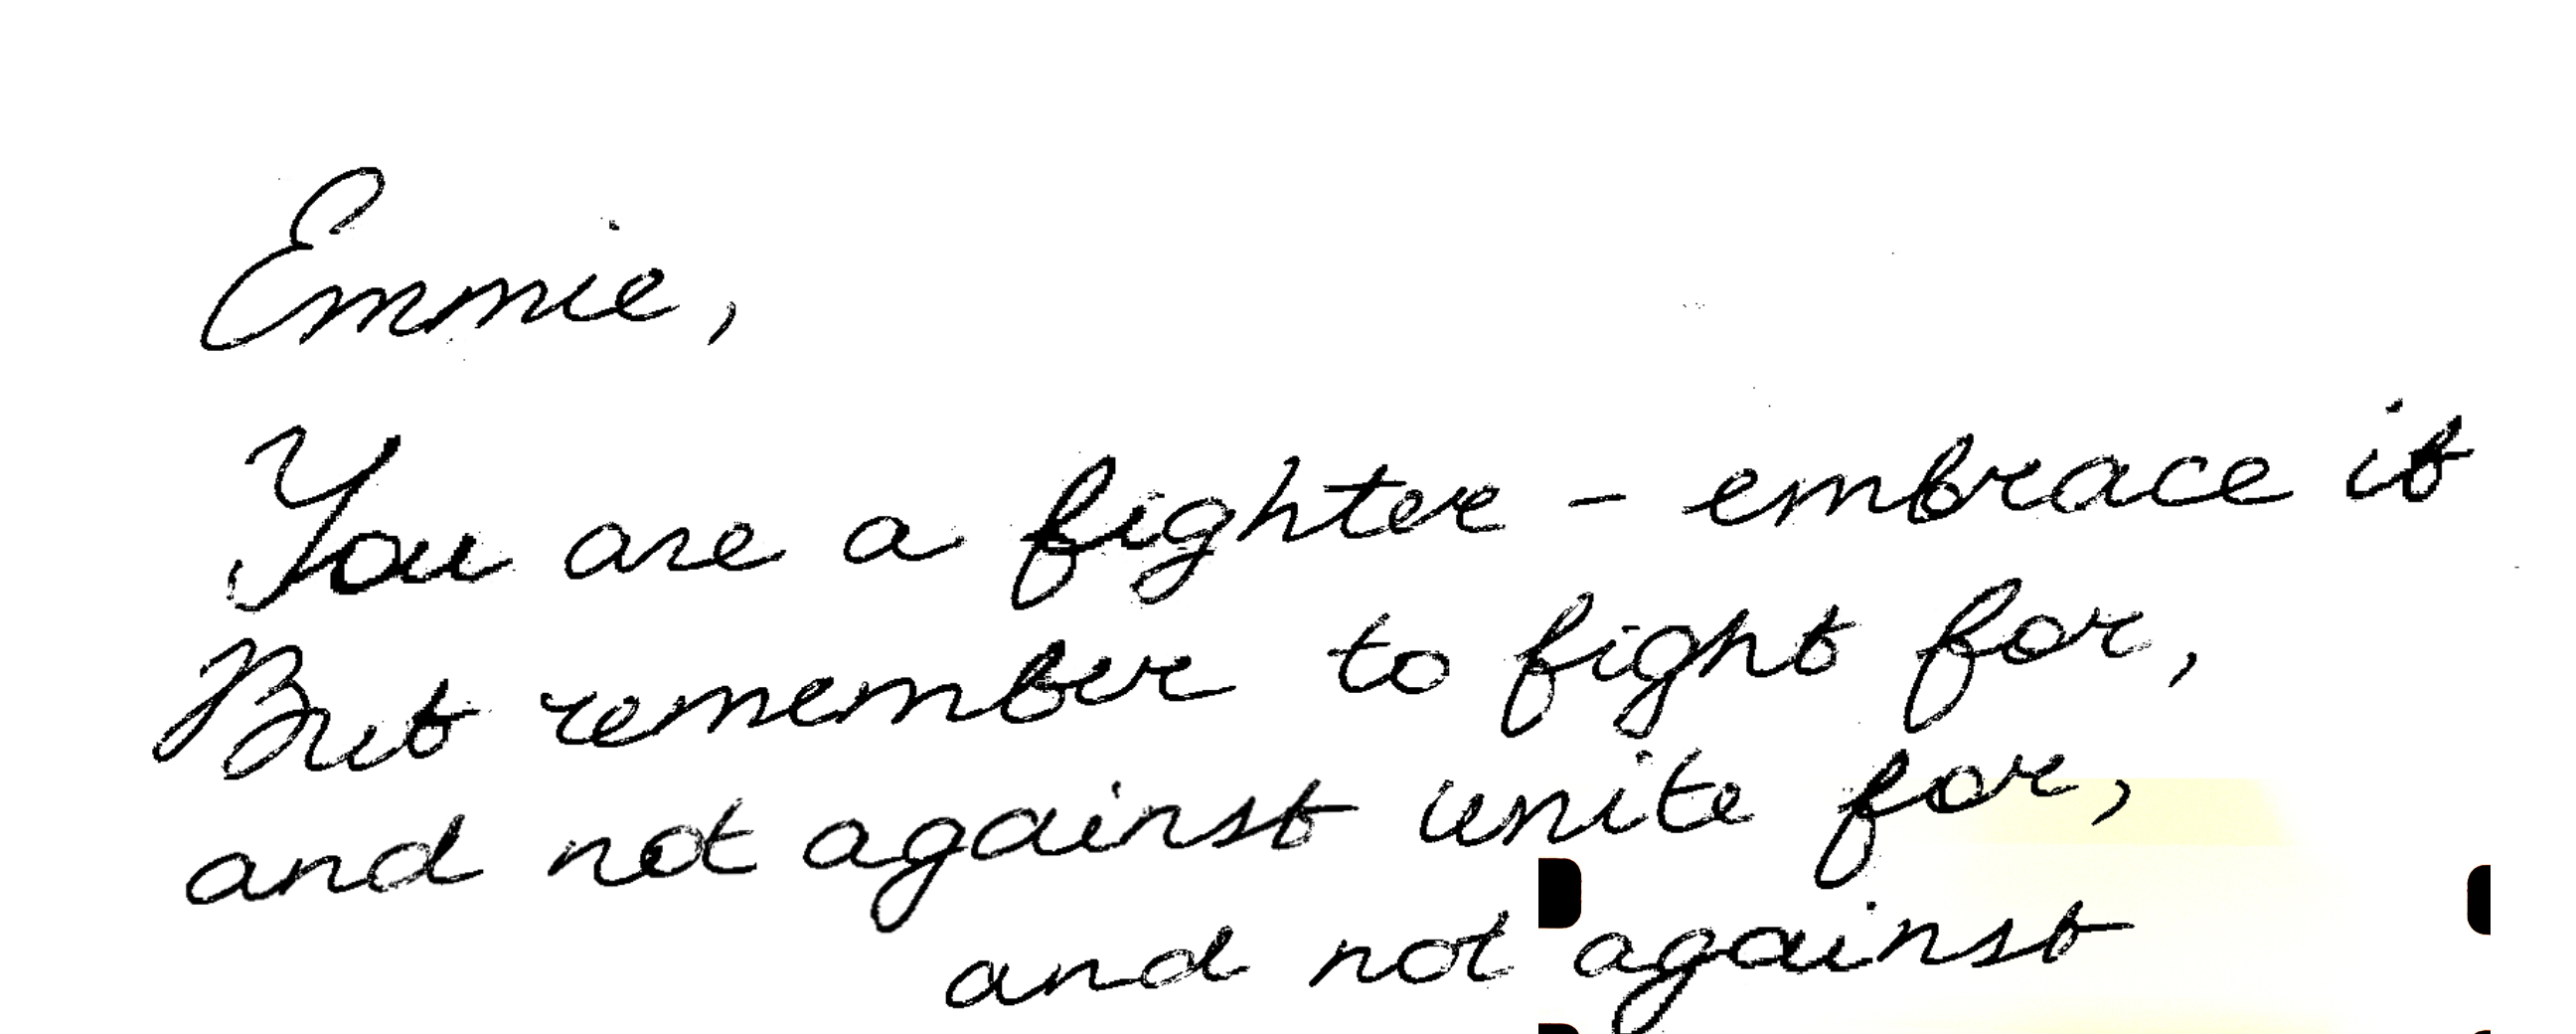 Emmie,
You are a fighter - embrace it
But remember to fight for,
and not against unite for,
and not against